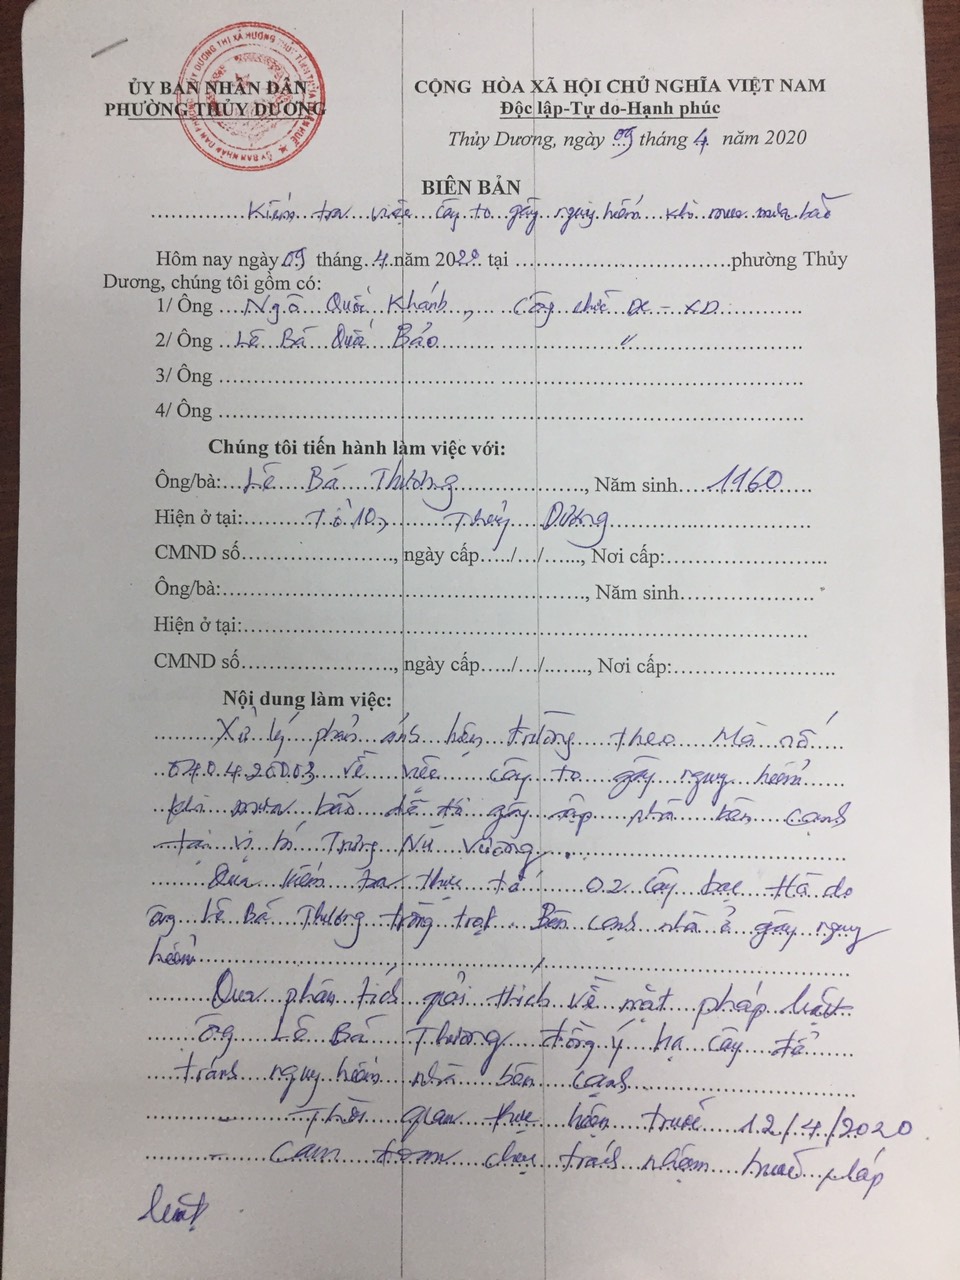 ỦY BAN NHÂN DÂN
PHƯỜNG THỦY DƯƠNG
CỘNG HÒA XÃ HỘI CHỦ NGHĨA VIỆT NAM
Độc lập-Tự do-Hạnh phúc
Thủy Dương, ngày 09 tháng 4 năm 2020
BIÊN BẢN
Kiểm tra việc cây to gây nguy hiểm khi mưa bão
Hôm nay ngày 09 tháng 4 năm 2020 tại ........................ phường Thủy
Dương, chúng tôi gồm có:
1/ Ông Ngô Quốc Khánh, Công chức ĐC - XD
2/ Ông Lê Bá Quốc Bảo "
3/ Ông
4/ Ông
Chúng tôi tiến hành làm việc với:
Ông/bà: Lê Bá Thương, Năm sinh 1960
Hiện ở tại: Tổ 10, Thủy Dương
CMND số................, ngày cấp...../.../......, Nơi cấp:................
Ông/bà:................, Năm sinh................
Hiện ở tại:................
CMND số................, ngày cấp...../.../......, Nơi cấp:................
Nội dung làm việc:
Xử lý phản ánh hiện trường theo Mã số
040420003 về việc cây to gây nguy hiểm
khi mưa bão dễ gây sập nhà bên cạnh
tại vị trí Trưng Nữ Vương.
Qua kiểm tra thực tế 02 cây bạc Hà do
ông Lê Bá Thương trồng trọt Bên cạnh nhà ở gây nguy
hiểm
Qua phân tích giải thích về mặt pháp luật
Ông Lê Bá Thương đồng ý hạ cây để
tránh nguy hiểm nhà bên cạnh
Thời gian thực hiện trước 12/4/2020
cam đoan chịu trách nhiệm trước pháp
luật